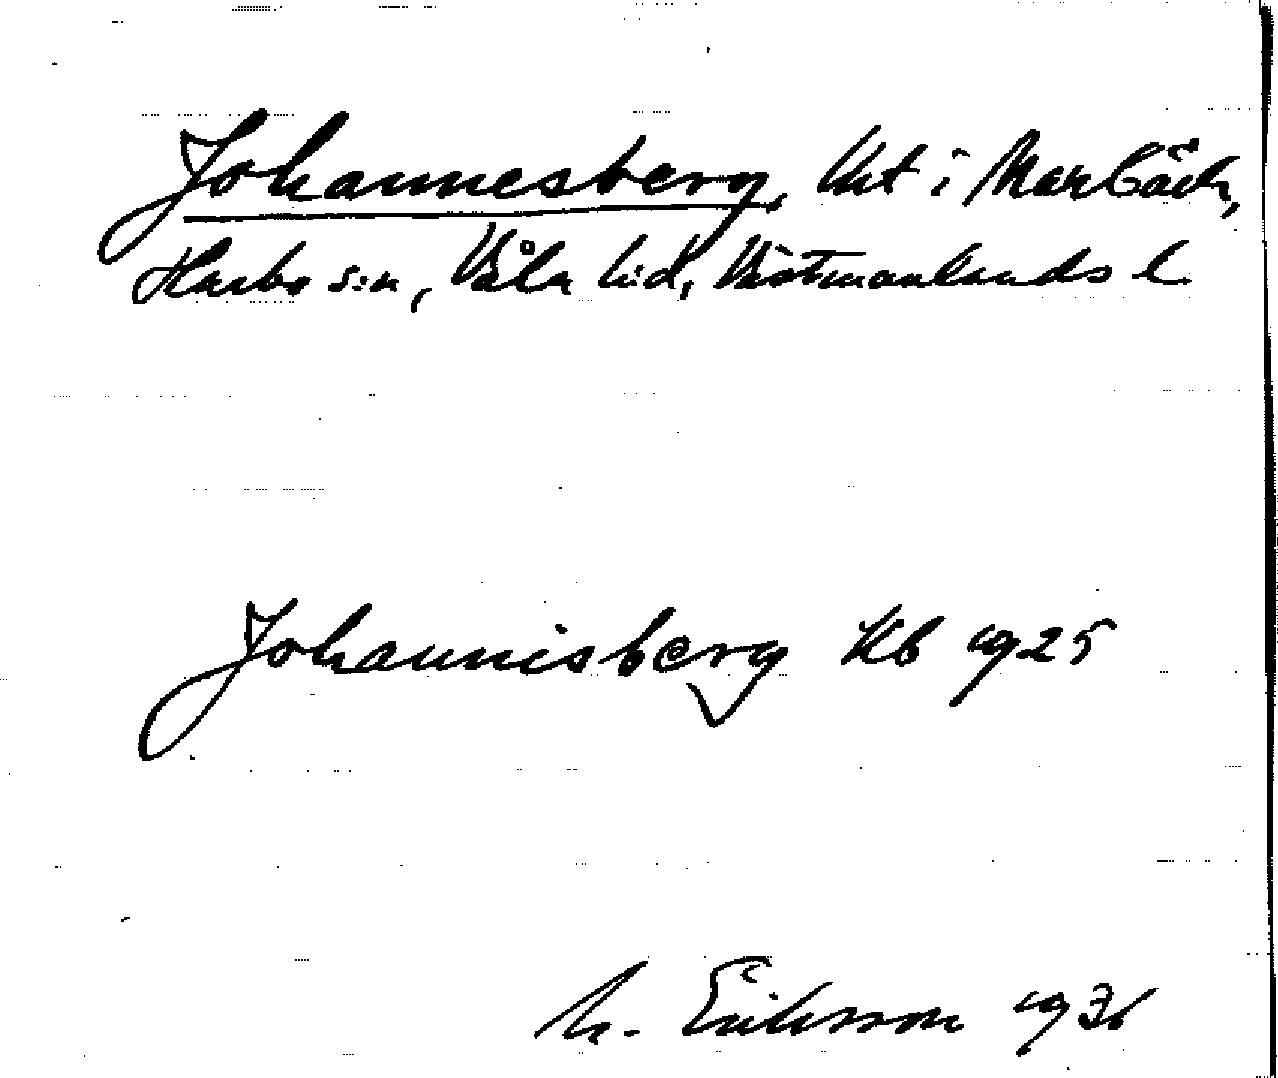 Johannesberg, lht i Marbäck,
Harbo s:n, Våla hd, Västmanlands l.
Johannisberg Kb 1925
M. Eriksson 1936